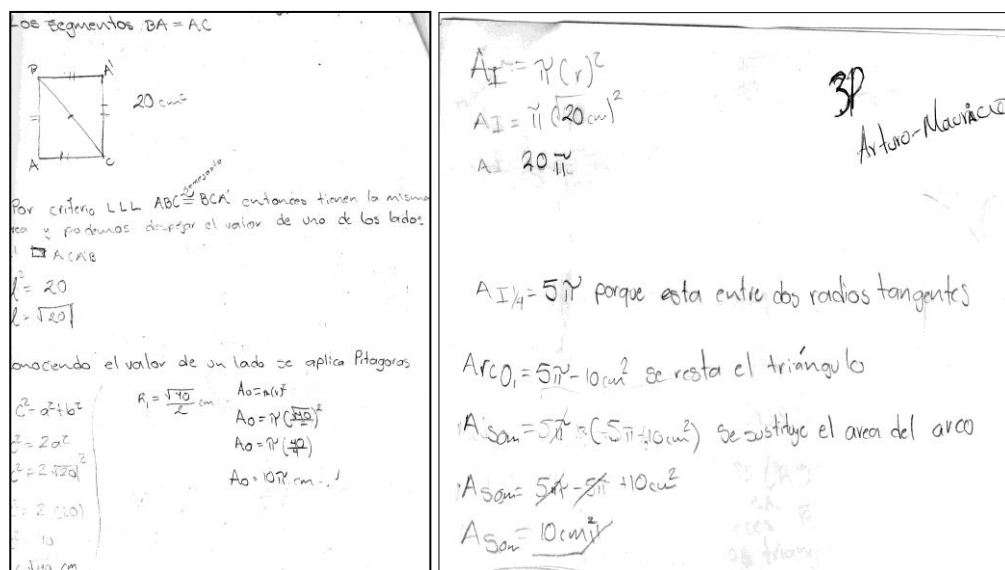 Los segmentos BA = AC
B A'
20 cm²
A C
semejante
Por criterio LLL ABC ≅ BCA' entonces tienen la misma
área y podemos despejar el valor de uno de los lados
ACA'B
l² = 20
l = √20
conociendo el valor de un lado se aplica Pitagoras
c² = a² + b²
c² = 2a²
c² = 2√20²
= 2 (20)
R₁ = √40/2 cm
Ao = π(r)²
Ao = π(√40/2)²
Ao = π(40/4)
Ao = 10π cm
A_I = π(r)²
A_I = π(√20 cm)²
A_I 20π
3P
Arturo-Mauricio
A_I1/4 = 5π porque esta entre dos radios tangentes
Arco₁ = 5π - 10cm² se resta el triángulo
A_Som = 5π - (5π - 10cm²) se sustituye el area del arco
A_Som = 5π - 5π + 10cm²
A_Som = 10cm²